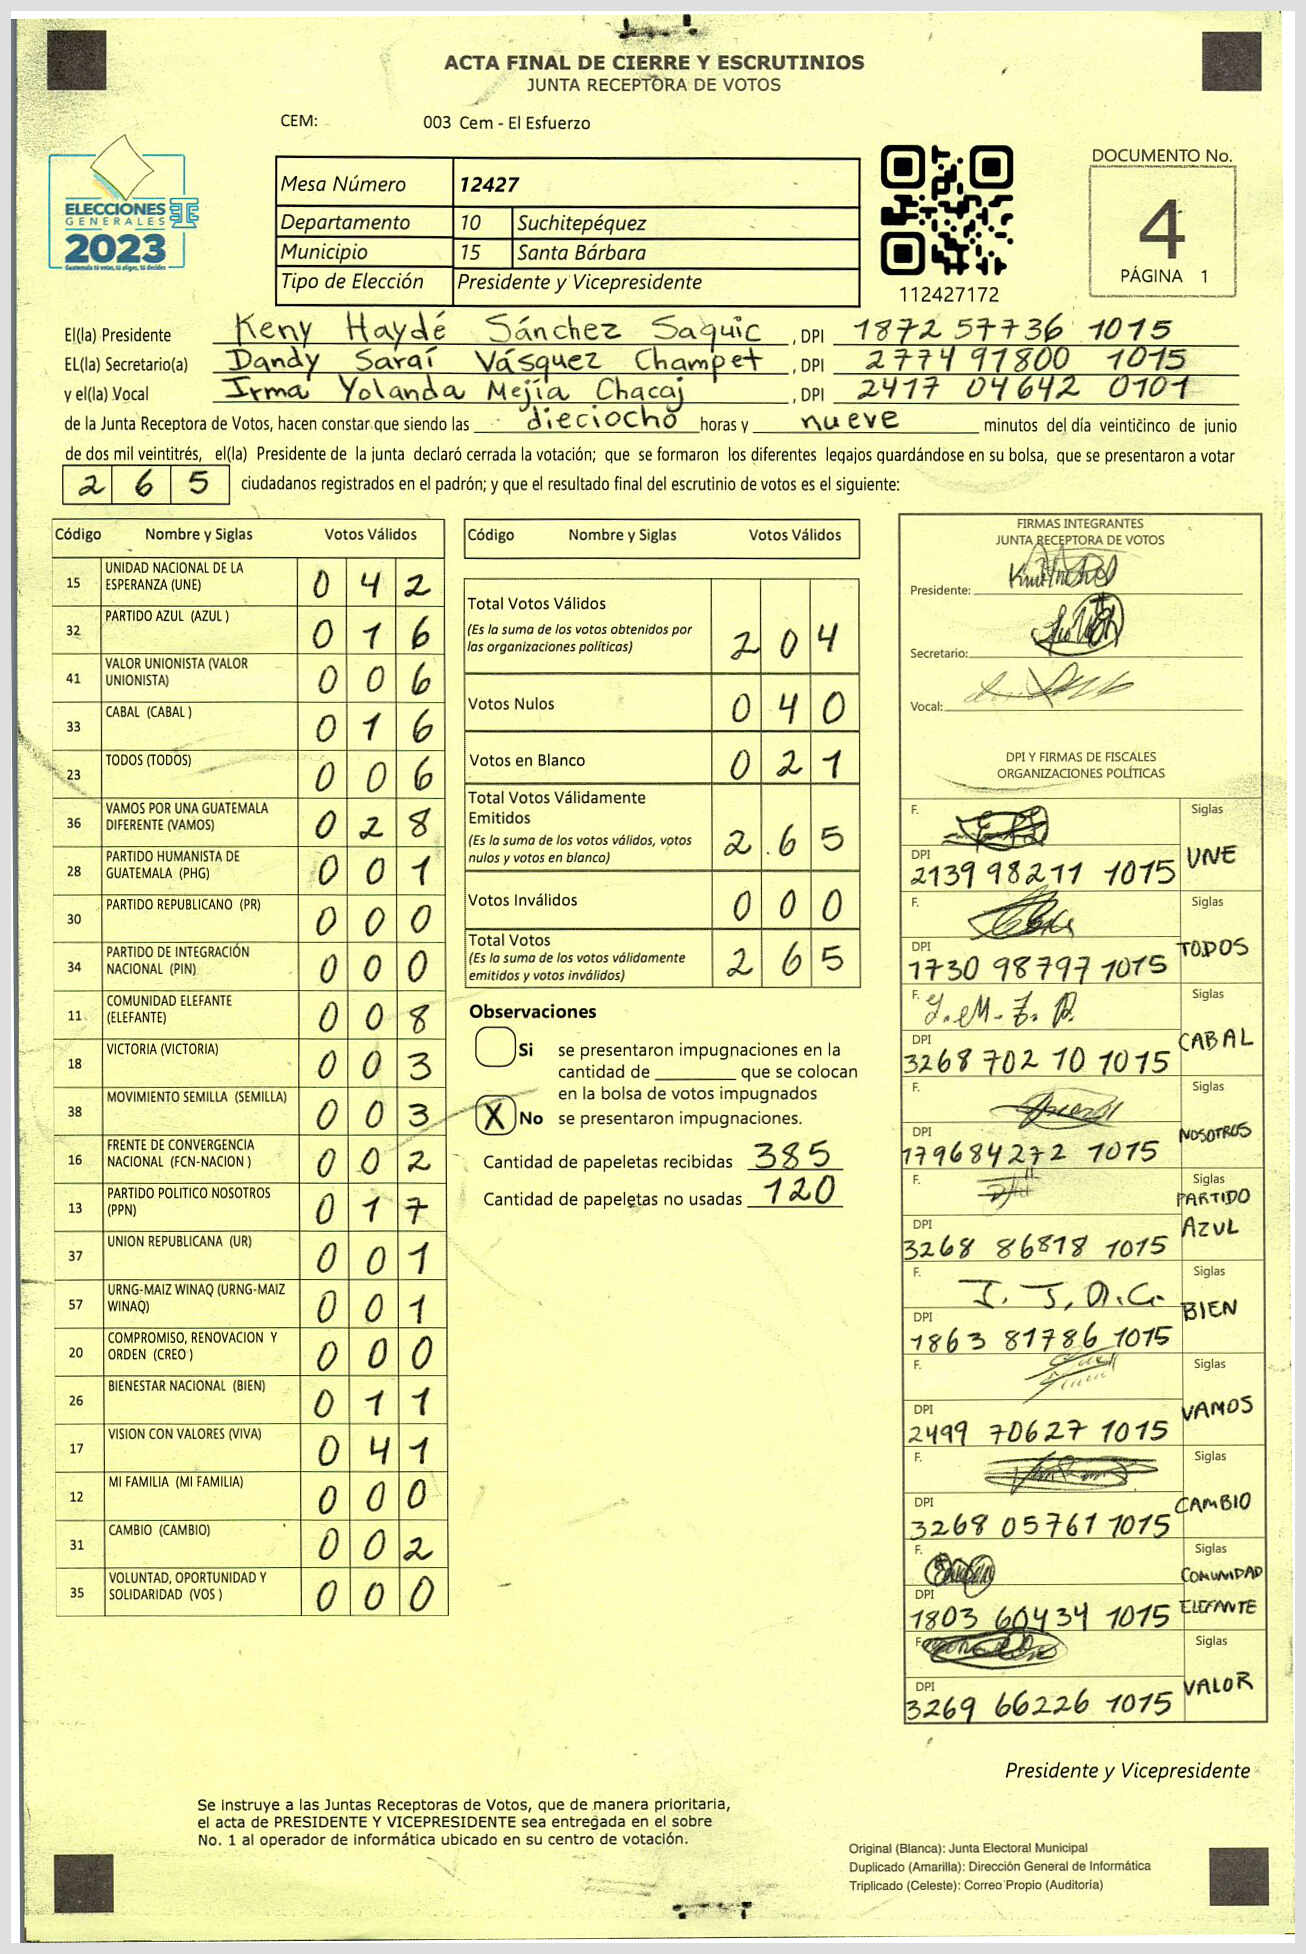 ACTA FINAL DE CIERRE Y ESCRUTINIOS
JUNTA RECEPTORA DE VOTOS
CEM: 003 Cem - El Esfuerzo
ELECCIONES
GENERALES
2023
Guatemala tú votas, tú eliges, tú decides
Mesa Número 12427
Departamento 10 Suchitepéquez
Municipio 15 Santa Bárbara
Tipo de Elección Presidente y Vicepresidente
112427172
DOCUMENTO No.
4
PÁGINA 1
El(la) Presidente Keny Haydé Sánchez Saquic, DPI 1872 57736 1015
EL(la) Secretario(a) Dandy Saraí Vásquez Champet, DPI 2774 91800 1015
y el(la) Vocal Irma Yolanda Mejía Chacaj, DPI 2417 04642 0101
de la Junta Receptora de Votos, hacen constar que siendo las dieciocho horas y nueve minutos del día veinticinco de junio
de dos mil veintitrés, el(la) Presidente de la junta declaró cerrada la votación; que se formaron los diferentes legajos guardándose en su bolsa, que se presentaron a votar
2 6 5 ciudadanos registrados en el padrón; y que el resultado final del escrutinio de votos es el siguiente:
Código Nombre y Siglas Votos Válidos
15 UNIDAD NACIONAL DE LA ESPERANZA (UNE) 0 4 2
32 PARTIDO AZUL (AZUL ) 0 1 6
41 VALOR UNIONISTA (VALOR UNIONISTA) 0 0 6
33 CABAL (CABAL ) 0 1 6
23 TODOS (TODOS) 0 0 6
36 VAMOS POR UNA GUATEMALA DIFERENTE (VAMOS) 0 2 8
28 PARTIDO HUMANISTA DE GUATEMALA (PHG) 0 0 1
30 PARTIDO REPUBLICANO (PR) 0 0 0
34 PARTIDO DE INTEGRACIÓN NACIONAL (PIN) 0 0 0
11 COMUNIDAD ELEFANTE (ELEFANTE) 0 0 8
18 VICTORIA (VICTORIA) 0 0 3
38 MOVIMIENTO SEMILLA (SEMILLA) 0 0 3
16 FRENTE DE CONVERGENCIA NACIONAL (FCN-NACION ) 0 0 2
13 PARTIDO POLITICO NOSOTROS (PPN) 0 1 7
37 UNION REPUBLICANA (UR) 0 0 1
57 URNG-MAIZ WINAQ (URNG-MAIZ WINAQ) 0 0 1
20 COMPROMISO, RENOVACION Y ORDEN (CREO ) 0 0 0
26 BIENESTAR NACIONAL (BIEN) 0 1 1
17 VISION CON VALORES (VIVA) 0 4 1
12 MI FAMILIA (MI FAMILIA) 0 0 0
31 CAMBIO (CAMBIO) 0 0 2
35 VOLUNTAD, OPORTUNIDAD Y SOLIDARIDAD (VOS ) 0 0 0
Código Nombre y Siglas Votos Válidos
Total Votos Válidos 2 0 4
(Es la suma de los votos obtenidos por
las organizaciones políticas)
Votos Nulos 0 4 0
Votos en Blanco 0 2 1
Total Votos Válidamente
Emitidos
(Es la suma de los votos válidos, votos
nulos y votos en blanco) 2 6 5
Votos Inválidos 0 0 0
Total Votos
(Es la suma de los votos válidamente
emitidos y votos inválidos) 2 6 5
Observaciones
Si se presentaron impugnaciones en la
cantidad de ________ que se colocan
en la bolsa de votos impugnados
X No se presentaron impugnaciones.
Cantidad de papeletas recibidas 385
Cantidad de papeletas no usadas 120
FIRMAS INTEGRANTES
JUNTA RECEPTORA DE VOTOS
Presidente:
Secretario:
Vocal:
DPI Y FIRMAS DE FISCALES
ORGANIZACIONES POLÍTICAS
F. Siglas
DPI UNE
2139 98211 1015
F. Siglas
DPI TODOS
1730 98797 1015
F. Y.M.Z.P. Siglas
DPI CABAL
3268 702 10 1015
F. Siglas
DPI NOSOTROS
179684272 1015
F. Siglas
PARTIDO
DPI AZUL
3268 86818 1015
F. J. J, A.C. Siglas
DPI BIEN
1863 81786 1015
F. Siglas
DPI VAMOS
2499 70627 1015
F. Siglas
DPI CAMBIO
3268 05761 1015
F. Siglas
COMUNIDAD
DPI ELEFANTE
1803 60434 1015
F. Siglas
DPI VALOR
3269 66226 1015
Presidente y Vicepresidente
Se instruye a las Juntas Receptoras de Votos, que de manera prioritaria,
el acta de PRESIDENTE Y VICEPRESIDENTE sea entregada en el sobre
No. 1 al operador de informática ubicado en su centro de votación.
Original (Blanca): Junta Electoral Municipal
Duplicado (Amarilla): Dirección General de Informática
Triplicado (Celeste): Correo Propio (Auditoría)